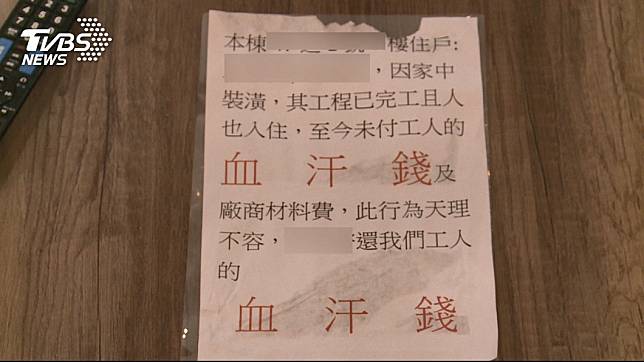 TVBS
NEWS
本棟 樓住戶:
，因家中
裝潢，其工程已完工且人
也入住，至今未付工人的
血 汗 錢及
廠商材料費，此行為天理
不容， 還我們工人
的
血 汗 錢